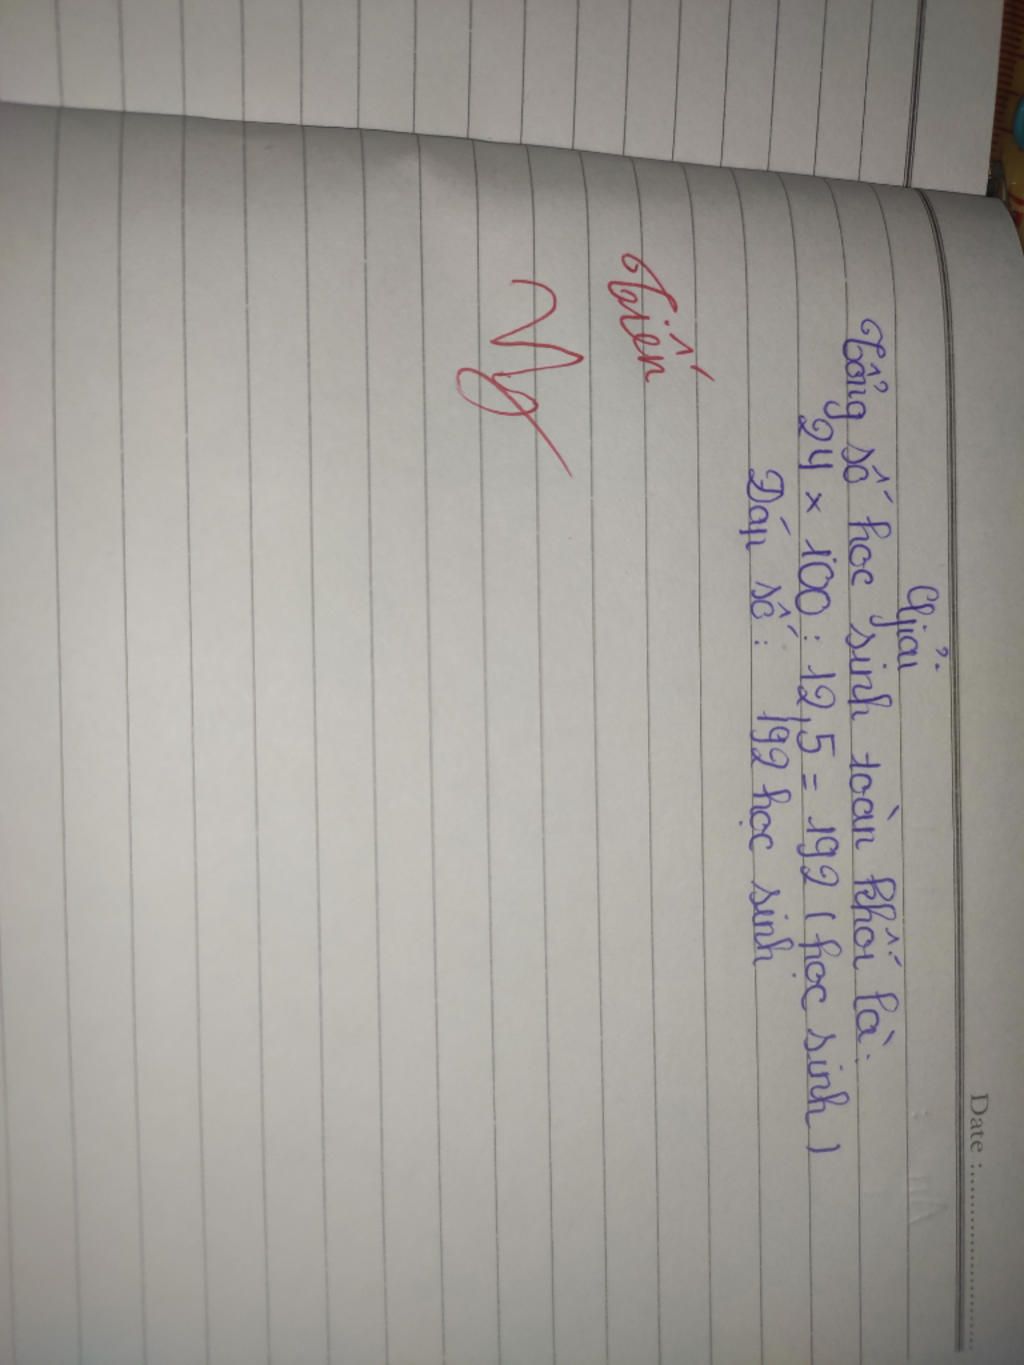 Date :........................
Giải:
Tổng số học sinh toàn khối là:
24 × 100 : 12,5 = 192 (học sinh)
Đáp số : 192 học sinh
Tiến